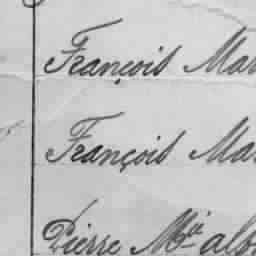 François Mar
François Mar
Pierre Mie alo